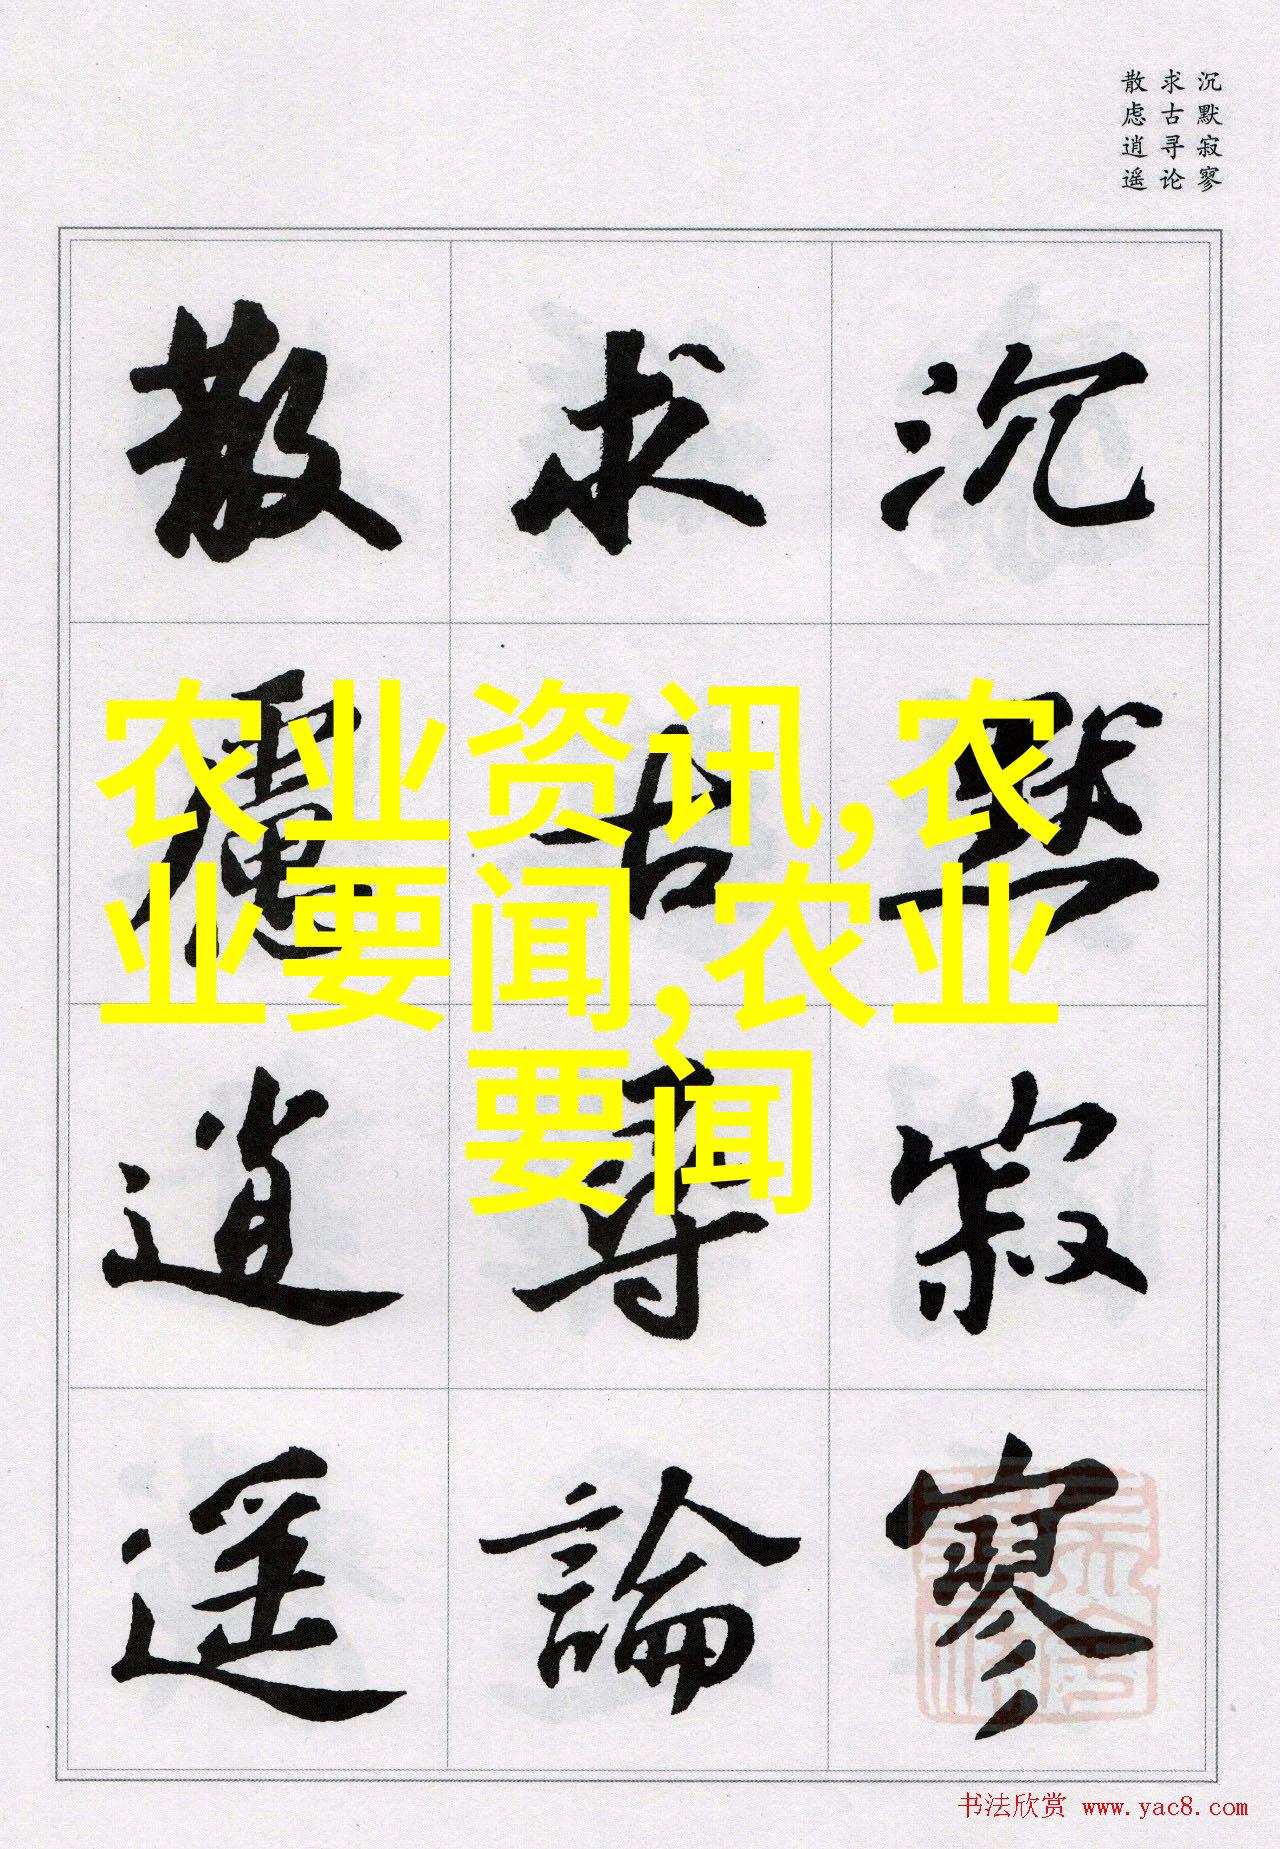 沉默寂寥
求古寻论
散虑逍遥
沉默寂寥
求古尋論
散慮逍遥
农业资讯,农
业要闻,农业
要闻
书法欣赏 www.yac8.com